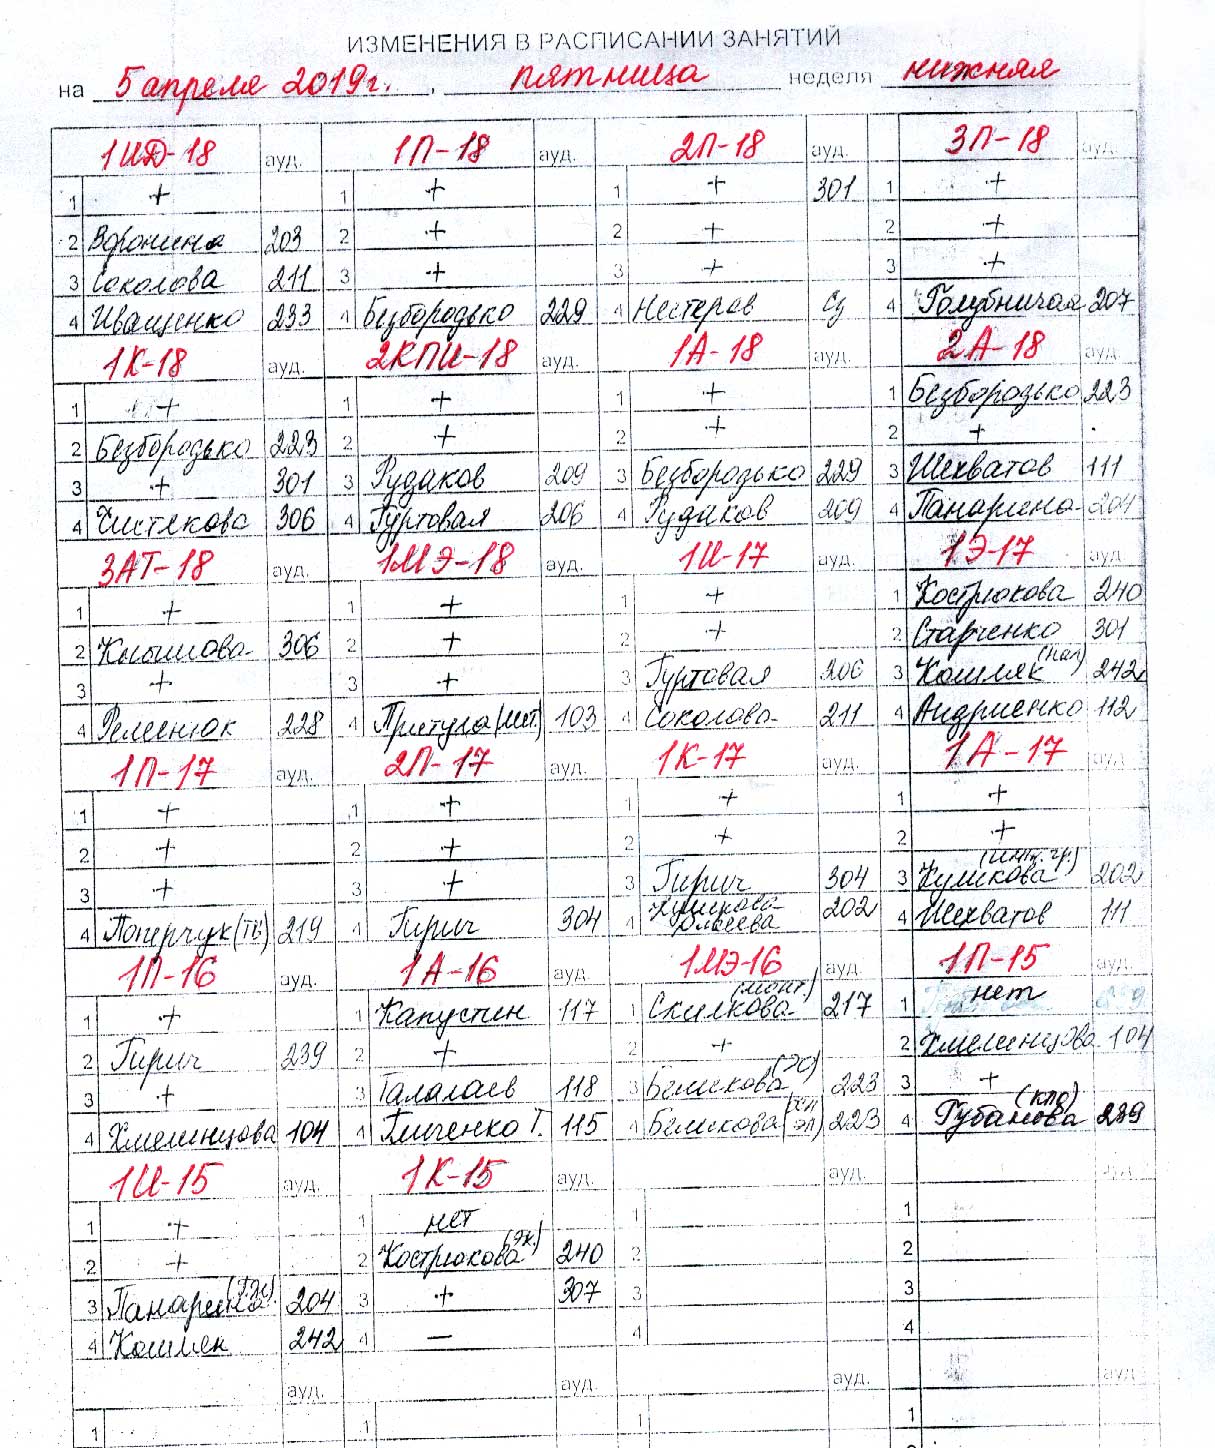 ИЗМЕНЕНИЯ В РАСПИСАНИИ ЗАНЯТИЙ
на 5 апреля 2019г. , пятница неделя нижняя
1ИД-18 ауд. 1П-18 ауд. 2П-18 ауд. 3П-18 ауд.
1 + 1 + 1 + 301 1 +
2 Воронина 203 2 + 2 + 2 +
3 Соколова 211 3 + 3 + 3 +
4 Иващенко 233 4 Безбородько 229 4 Нестеров 4 Голубничая 207
1К-18 ауд. 2КПИ-18 ауд. 1А-18 ауд. 2А-18 ауд.
1 + 1 + 1 + 1 Безбородько 223
2 Безбородько 223 2 + 2 + 2 +
3 + 301 3 Рудаков 209 3 Безбородько 229 3 Шехватов 111
4 Чистякова 306 4 Гуртовая 206 4 Рудаков 209 4 Панарина 204
3АТ-18 ауд. 1МЭ-18 ауд. 1И-17 ауд. 1Э-17 ауд.
1 + 1 + 1 + 1 Кострюкова 240
2 306 2 + 2 + 2 Старченко 301
3 + 3 + 3 Гуртовая 206 3 Кошляк 242
4 228 4 Притула 103 4 Соколова 211 4 Андриенко 112
1П-17 ауд. 2П-17 ауд. 1К-17 ауд. 1А-17 ауд.
1 + 1 + 1 + 1 +
2 + 2 + 2 + 2 +
3 + 3 + 3 Гирич 304 3 Куликова 202
4 219 4 Гирич 304 4 Куликова 202 4 Шехватов 111
1П-16 ауд. 1А-16 ауд. 1МЭ-16 ауд. 1П-15 ауд.
1 + 1 Капустин 117 1 Скилкова (монт.) 217 1 нет
2 Гирич 239 2 + 2 + 2 Хмеленцова 104
3 + 3 Галалаев 118 3 Беликова 223 3 +
4 Хмеленцова 104 4 115 4 Беликова 223 4 Губанова 239
1И-15 ауд. 1К-15 ауд. ауд. ауд.
1 + 1 нет 1 1
2 + 2 Кострюкова (эк.) 240 2 2
3 Панарина 204 3 + 307 3 3
4 Кошляк 242 4 — 4 4
ауд. ауд. ауд. ауд.
1 1 1 1